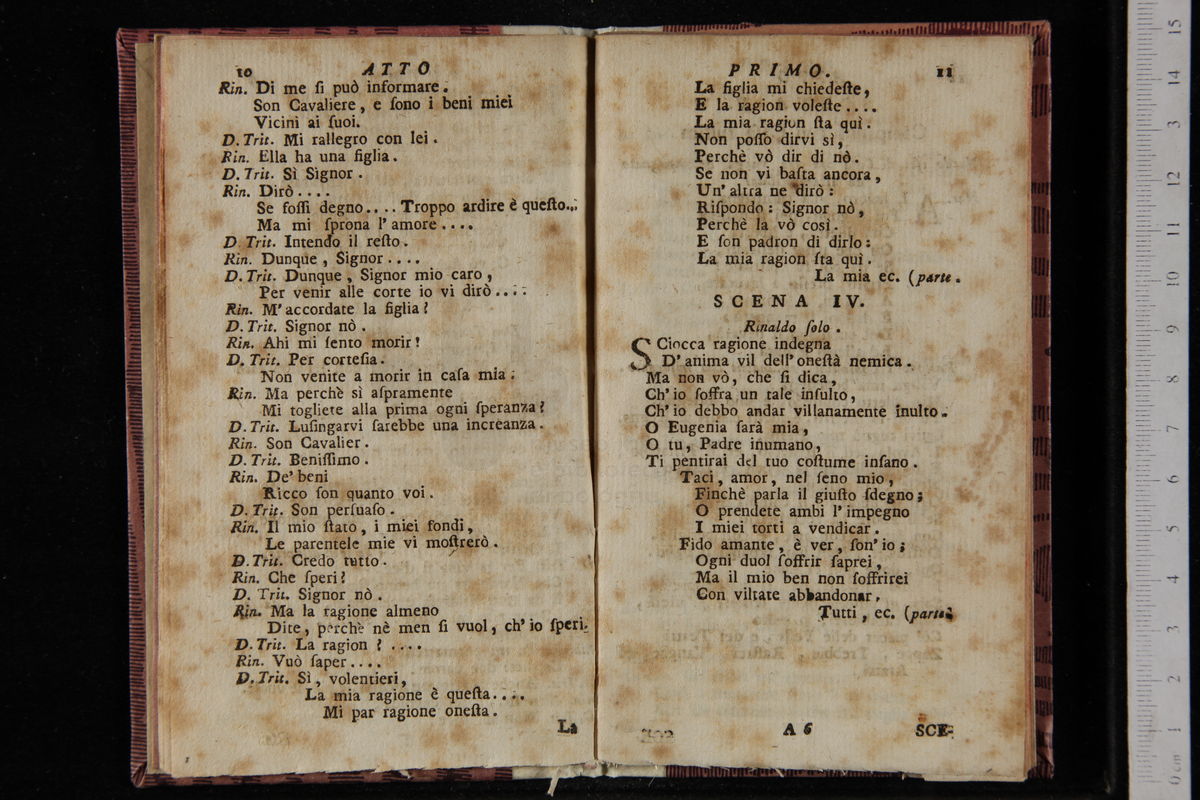 10 ATTO
Rin. Di me ſi può informare.
Son Cavaliere, e ſono i beni miei
Vicini ai ſuoi.
D. Trit. Mi rallegro con lei.
Rin. Ella ha una figlia.
D. Trit. Sì Signor.
Rin. Dirò....
Se foſſi degno.... Troppo ardire è queſto...
Ma mi ſprona l' amore....
D. Trit. Intendo il reſto.
Rin. Dunque, Signor....
D. Trit. Dunque, Signor mio caro,
Per venir alle corte io vi dirò....
Rin. M' accordate la figlia?
D. Trit. Signor nò.
Rin. Ahi mi ſento morir!
D. Trit. Per corteſia.
Non venite a morir in caſa mia.
Rin. Ma perchè sì aſpramente
Mi togliete alla prima ogni ſperanza?
D. Trit. Luſingarvi ſarebbe una increanza.
Rin. Son Cavalier.
D. Trit. Beniſſimo.
Rin. De' beni
Ricco ſon quanto voi.
D. Trit. Son perſuaſo.
Rin. Il mio ſtato, i miei fondi,
Le parentele mie vi moſtrerò.
D. Trit. Credo tutto.
Rin. Che ſperi?
D. Trit. Signor nò.
Rin. Ma la ragione almeno
Dite, perchè nè men ſi vuol, ch' io ſperi.
D. Trit. La ragion? ....
Rin. Vuò ſaper....
D. Trit. Sì, volentieri,
La mia ragione è queſta....
Mi par ragione oneſta.
La
PRIMO. 11
La figlia mi chiedeſte,
E la ragion voleſte....
La mia ragion ſta quì.
Non poſſo dirvi sì,
Perchè vò dir di nò.
Se non vi baſta ancora,
Un' altra ne dirò:
Riſpondo: Signor nò,
Perchè la vò così.
E ſon padron di dirlo:
La mia ragion ſta quì.
La mia ec. (parte.
SCENA IV.
Rinaldo ſolo.
SCiocca ragione indegna
D' anima vil dell' oneſtà nemica.
Ma non vò, che ſi dica,
Ch' io ſoffra un tale inſulto,
Ch' io debbo andar villanamente inulto.
O Eugenia ſarà mia,
O tu, Padre inumano,
Ti pentirai del tuo coſtume inſano.
Taci, amor, nel ſeno mio,
Finchè parla il giuſto ſdegno;
O prendete ambi l' impegno
I miei torti a vendicar.
Fido amante, è ver, ſon' io;
Ogni duol ſoffrir ſaprei,
Ma il mio ben non ſoffrirei
Con viltate abbandonar.
Tutti, ec. (parte.
A 6 SCE-